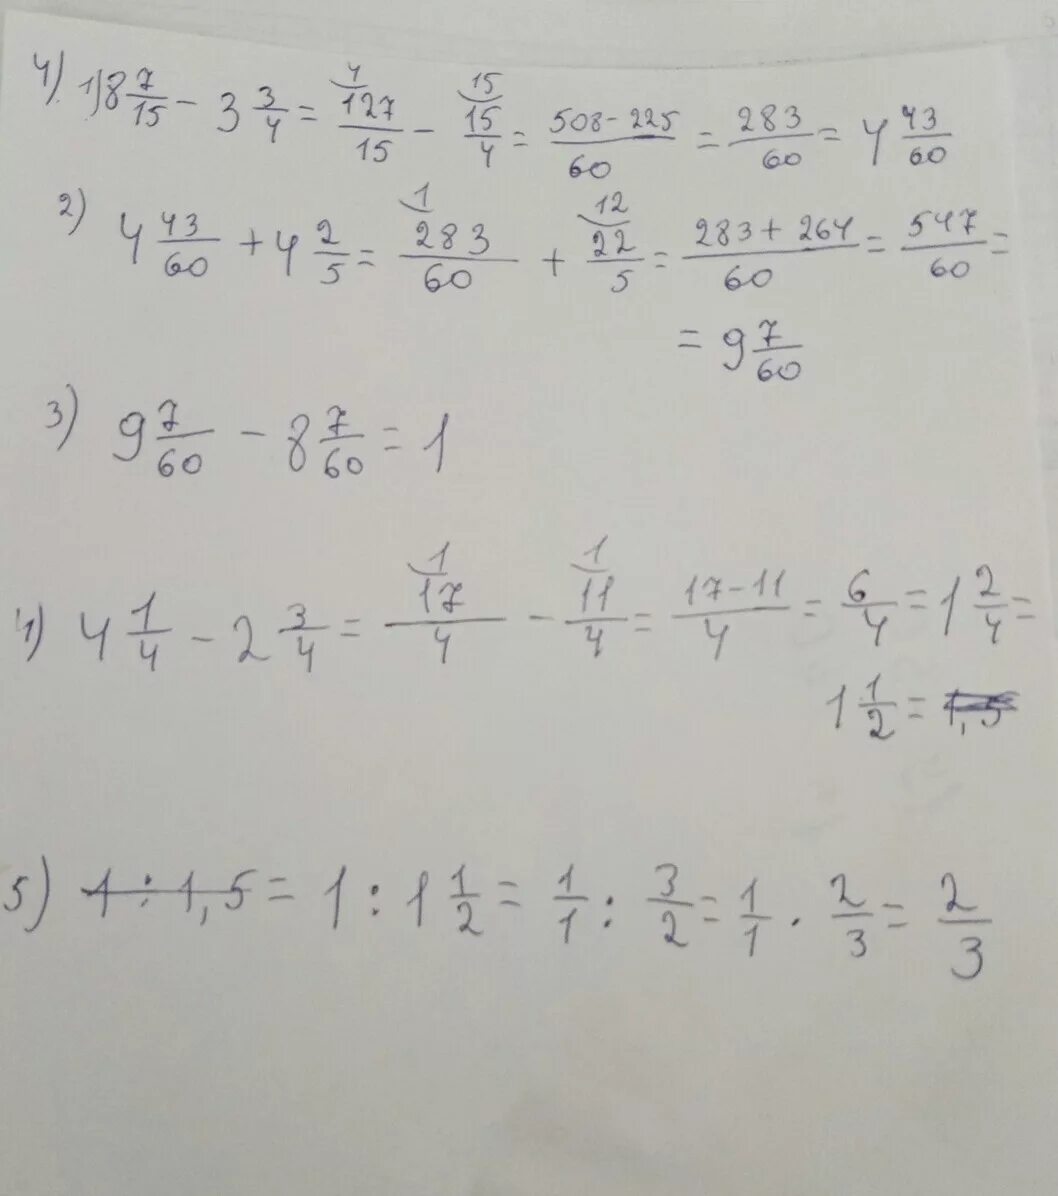 4). 1) 8 7/15 - 3 3/4 = 127/15 (4 - 15/4 (15 = 508-225/60 = 283/60 = 4 43/60
2) 4 43/60 + 4 2/5 = 283/60 (1 + 22/5 (12 = 283+264/60 = 547/60 =
= 9 7/60
3) 9 7/60 - 8 7/60 = 1
4) 4 1/4 - 2 3/4 = 17/4 (1 - 11/4 (1 = 17-11/4 = 6/4 = 1 2/4 =
1 1/2 = 1,5
5) 1 : 1,5 = 1 : 1 1/2 = 1/1 : 3/2 = 1/1 · 2/3 = 2/3